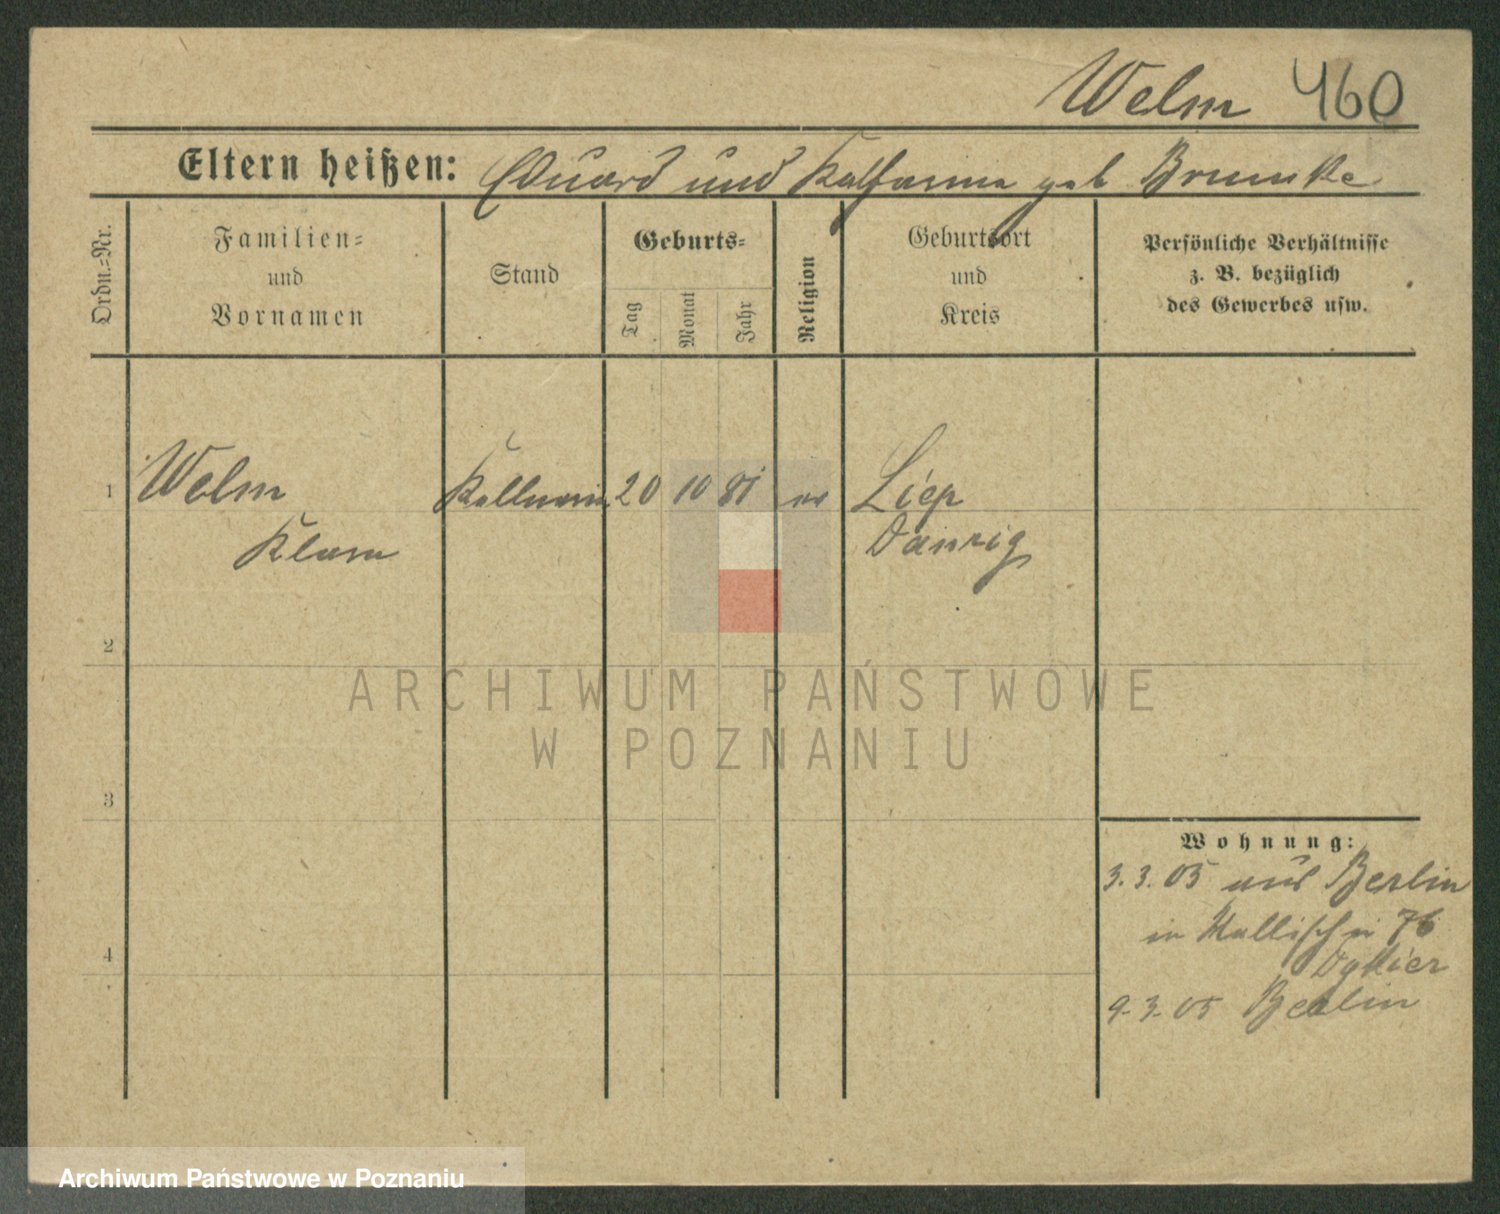 Welm 460
Eltern heißen: Eduard und Katharina geb Brunke
Ordn.=Nr.
Familien=
und
Vornamen
Stand
Geburts=
Tag
Monat
Jahr
Religion
Geburtsort
und
Kreis
Persönliche Verhältnisse
z. B. bezüglich
des Gewerbes usw.
1 Welm Kellnerin 20 10 81 ev Liep
Klara Danzig
2
3
4
Wohnung:
3. 3. 05 aus Berlin
in 76
9. 3. 05 Berlin
ARCHIWUM PAŃSTWOWE
W POZNANIU
Archiwum Państwowe w Poznaniu